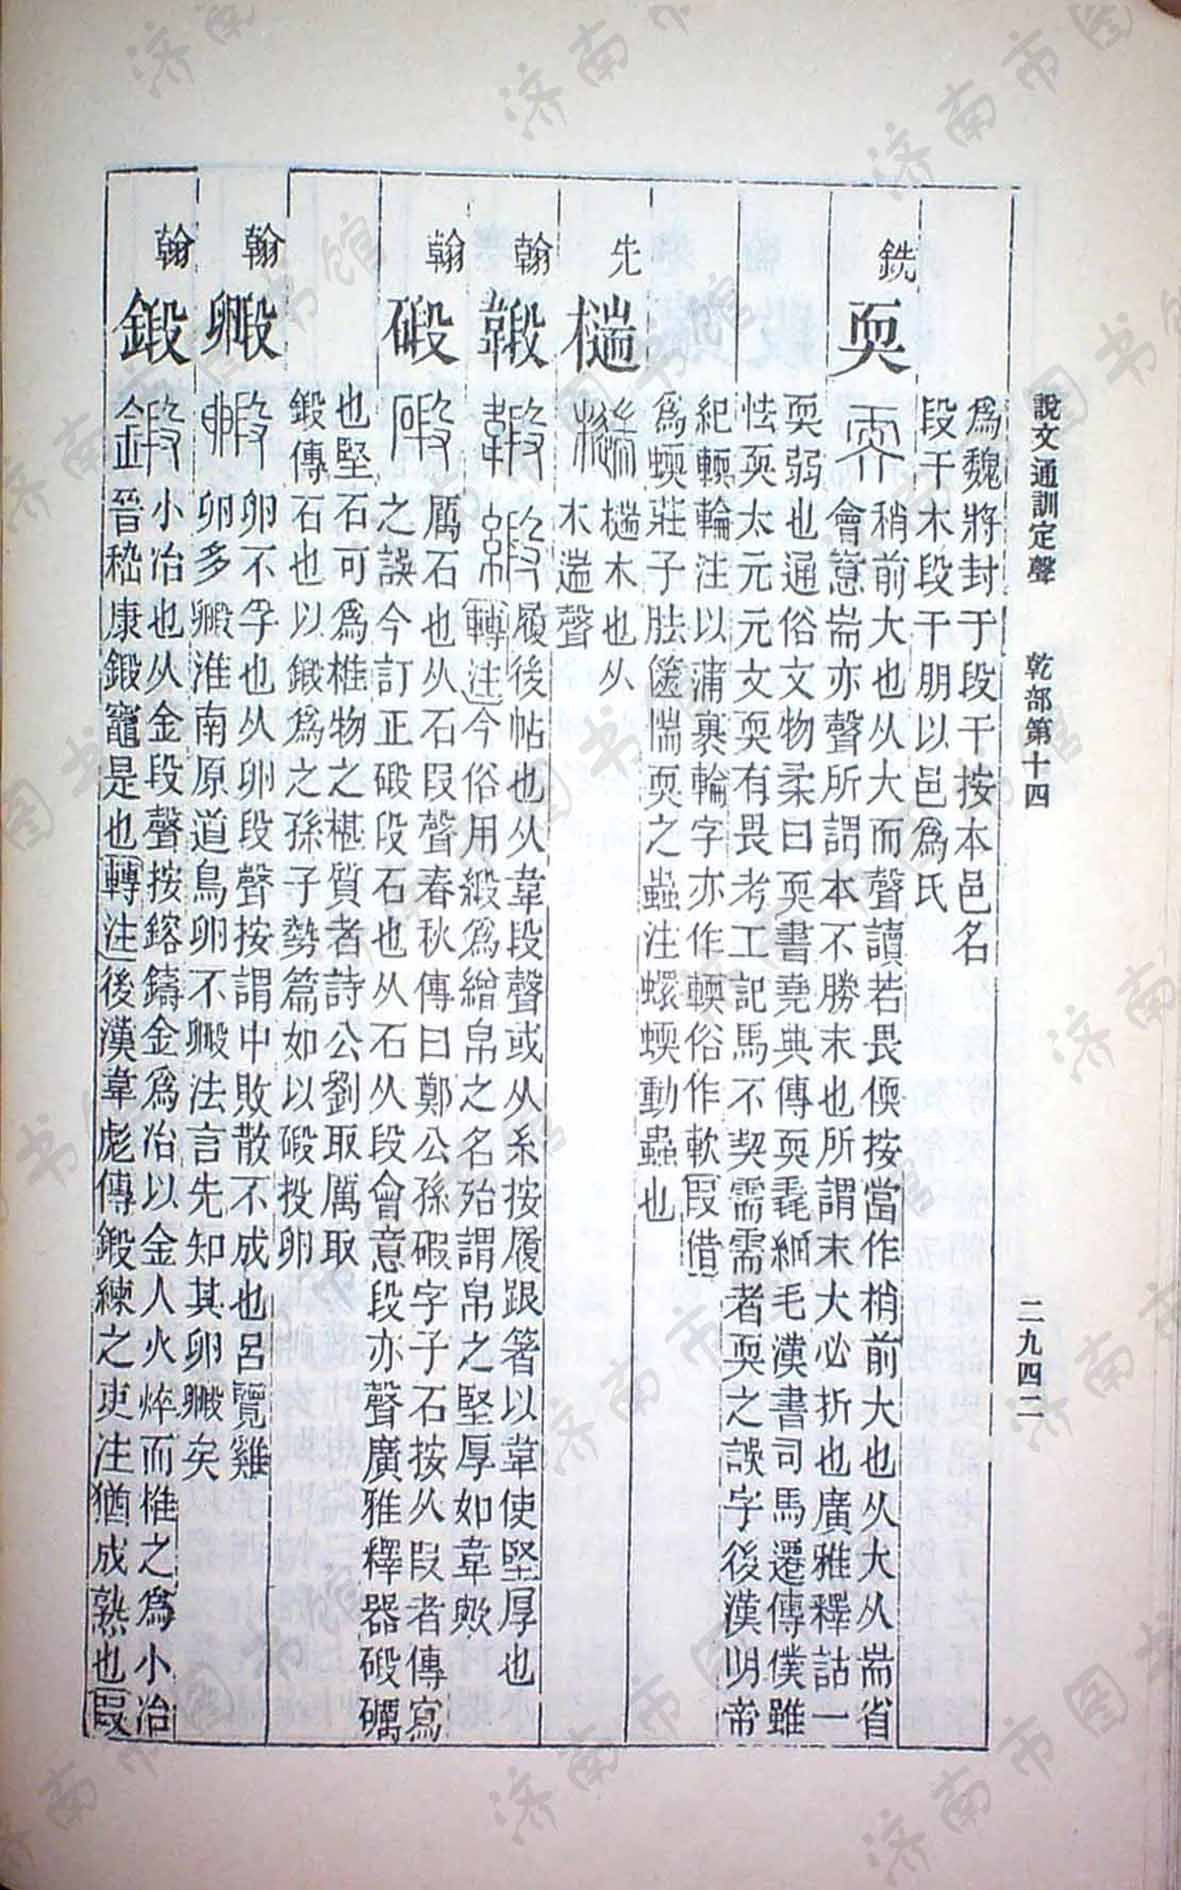 說文通訓定聲　乾部第十四　二九四二
為魏將封于段干按本邑名
段干木段干朋以邑爲氏
銑
耎
稍前大也从大而聲讀若畏偄按當作梢前大也从大从耑省
會意耑亦聲所謂本不勝末也所謂末大必折也廣雅釋詁一
耎弱也通俗文物柔曰耎書堯典傳耎毳緬毛漢書司馬遷傳僕雖
怯耎太元元文耎有畏考工記馬不契需需者耎之誤字後漢明帝
紀輭輪注以蒲裹輪字亦作輭俗作軟叚借
爲蝡莊子胠篋惴耎之蟲注蠉蝡動蟲也
先
椯
椯木也从
木遄聲
翰
鞎
履後帖也从韋段聲或从糸按履跟箸以韋使堅厚也
轉注今俗用緞爲繒帛之名殆謂帛之堅厚如韋歟
翰
碫
厲石也从石叚聲春秋傳曰鄭公孫碬字子石按从叚者傳寫
之誤今訂正碫段石也从石从段會意段亦聲廣雅釋器碫礪
也堅石可爲椎物之椹質者詩公劉取厲取
鍛傳石也以鍛爲之孫子勢篇如以碫投卵
翰
毈
卵不孚也从卵段聲按謂中敗散不成也呂覽雞
卵多毈淮南原道鳥卵不毈法言先知其卵毈矣
翰
鍛
小冶也从金段聲按鎔鑄金爲冶以金入火焠而椎之爲小冶
晉嵇康鍛竈是也轉注後漢韋彪傳鍛練之吏注猶成熟也叚